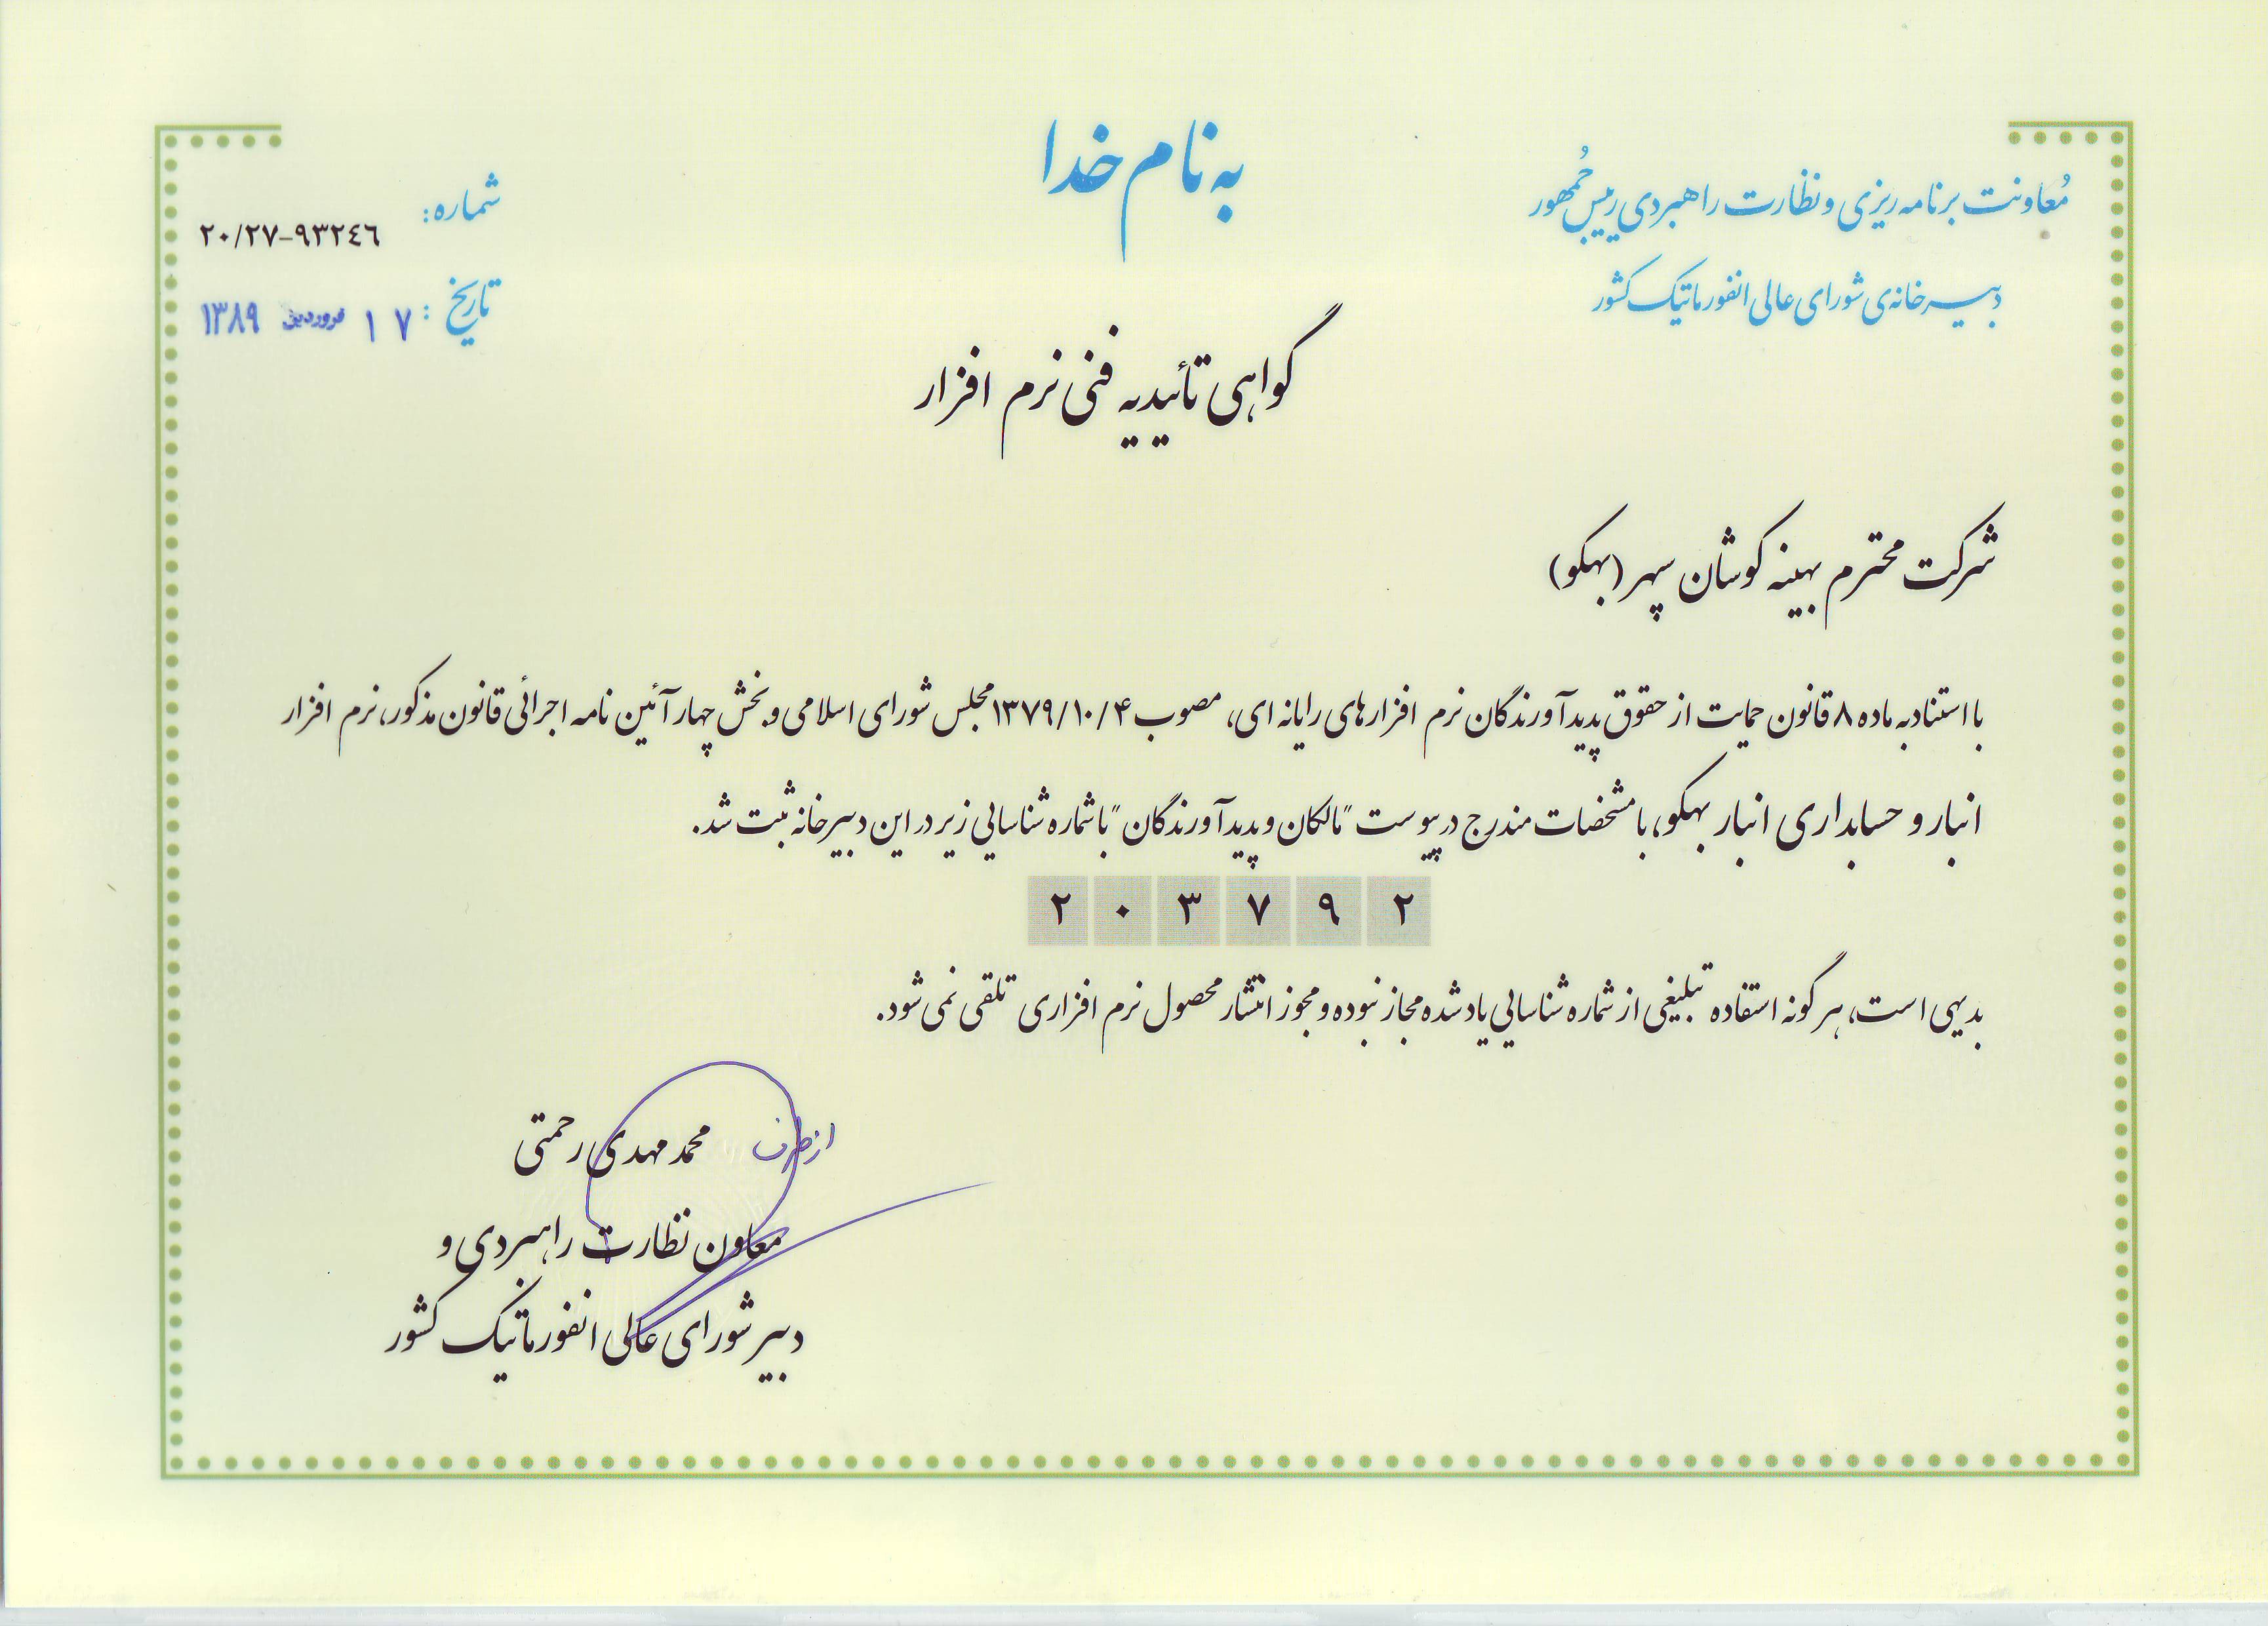 به نام خدا
معاونت برنامه ریزی و نظارت راهبردی رییس جُمهور
دبیرخانه‌ی شورای عالی انفورماتیک کشور
شماره:
۲۰/۲۷-۹۳۲۴۶
تاریخ: ۱۷ فروردین ۱۳۸۹
گواهی تأئیدیه فنی نرم افزار
شرکت محترم بهینه کوشان سپهر (بهکو)
با استناد به ماده ۸ قانون حمایت از حقوق پدیدآورندگان نرم افزارهای رایانه ای، مصوب ۱۳۷۹/۱۰/۴ مجلس شورای اسلامی و بخش چهار آئین نامه اجرائی قانون مذکور، نرم افزار
انبار و حسابداری انبار بهکو، با مشخصات مندرج در پیوست "مالکان و پدیدآورندگان" با شماره شناسایی زیر در این دبیرخانه ثبت شد.
۲۰۳۷۹۲
بدیهی است، هر گونه استفاده تبلیغی از شماره شناسایی یاد شده مجاز نبوده و مجوز انتشار محصول نرم افزاری تلقی نمی شود.
از طرف محمد مهدی رحمتی
معاون نظارت راهبردی و
دبیر شورای عالی انفورماتیک کشور